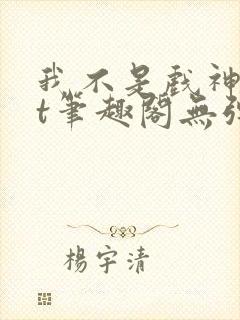 我不是戲神
t筆趣閣無彈
楊宇清